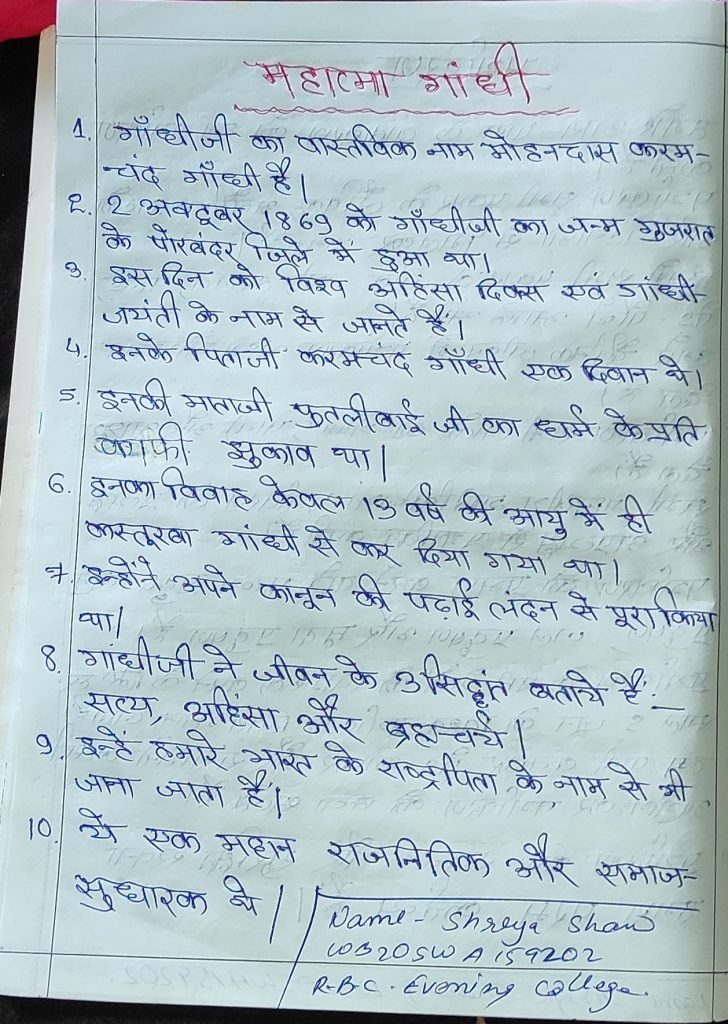 महात्मा गांधी
1. गाँधीजी का वास्तविक नाम मोहनदास करम-
चंद गाँधी है।
2. 2 अक्टूबर 1869 को गाँधीजी का जन्म गुजरात
के पोरबंदर जिले में हुआ था।
3. इस दिन को विश्व अहिंसा दिवस एवं गांधी
जयंती के नाम से जानते हैं।
4. इनके पिताजी करमचंद गाँधी एक दिवान थे।
5. इनकी माताजी पुतलीबाई जी का धर्म के प्रति
काफी झुकाव था।
6. इनका विवाह केवल 13 वर्ष की आयु में ही
कस्तूरबा गांधी से कर दिया गया था।
7. इन्होंने अपने कानून की पढ़ाई लंदन से पूरा किया
था।
8. गांधीजी ने जीवन के 3 सिद्धांत बताये हैं:-
सत्य, अहिंसा और ब्रह्मचर्य।
9. इन्हें हमारे भारत के राष्ट्रपिता के नाम से भी
जाना जाता है।
10. ये एक महान राजनितिक और समाज-
सुधारक थे।
Name - Shreya Shaw
WB20SWA159202
R.B.C. Evening College.